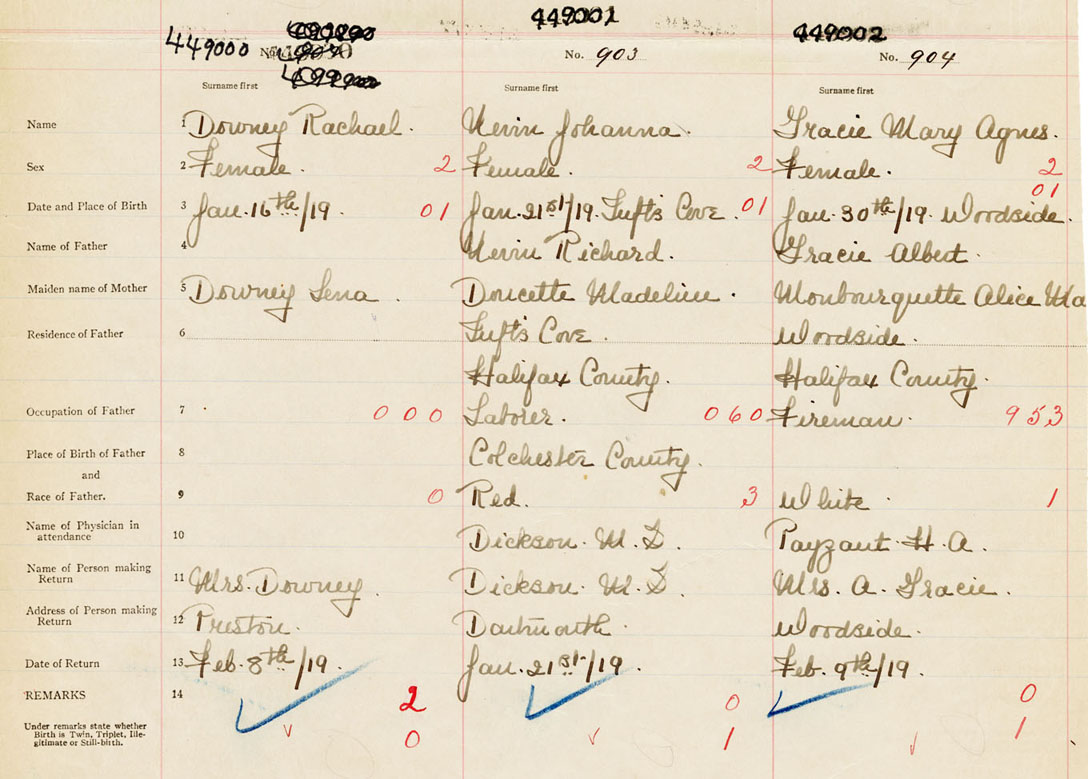 449000
449001
449002
No.
No. 903
No. 904
Surname first
Surname first
Surname first
Name
1 Downey Rachael.
Nevin Johanna.
Gracie Mary Agnes.
Sex
2 Female. 2
Female. 2
Female. 2
Date and Place of Birth
3 Jan. 16th/19. 01
Jan. 21st/19. Tufts Cove. 01
Jan. 30th/19. Woodside. 01
Name of Father
4
Nevin Richard.
Gracie Albert.
Maiden name of Mother
5 Downey Lena.
Doucette Madeline.
Monbourquette Alice Ma
Residence of Father
6
Tufts Cove.
Woodside.
Halifax County.
Halifax County.
Occupation of Father
7 000
Laborer. 060
Fireman. 953
Place of Birth of Father
8
Colchester County.
and
Race of Father.
9 0
Red. 3
White. 1
Name of Physician in
attendance
10
Dickson. M. D.
Payzant H. A.
Name of Person making
Return
11 Mrs. Downey.
Dickson. M. D.
Mrs. A. Gracie.
Address of Person making
Return
12 Preston.
Dartmouth.
Woodside.
Date of Return
13 Feb. 8th/19.
Jan. 21st/19.
Feb. 9th/19.
REMARKS
14 2
0
0
Under remarks state whether
Birth is Twin, Triplet, Ille-
gitimate or Still-birth.
0
1
1